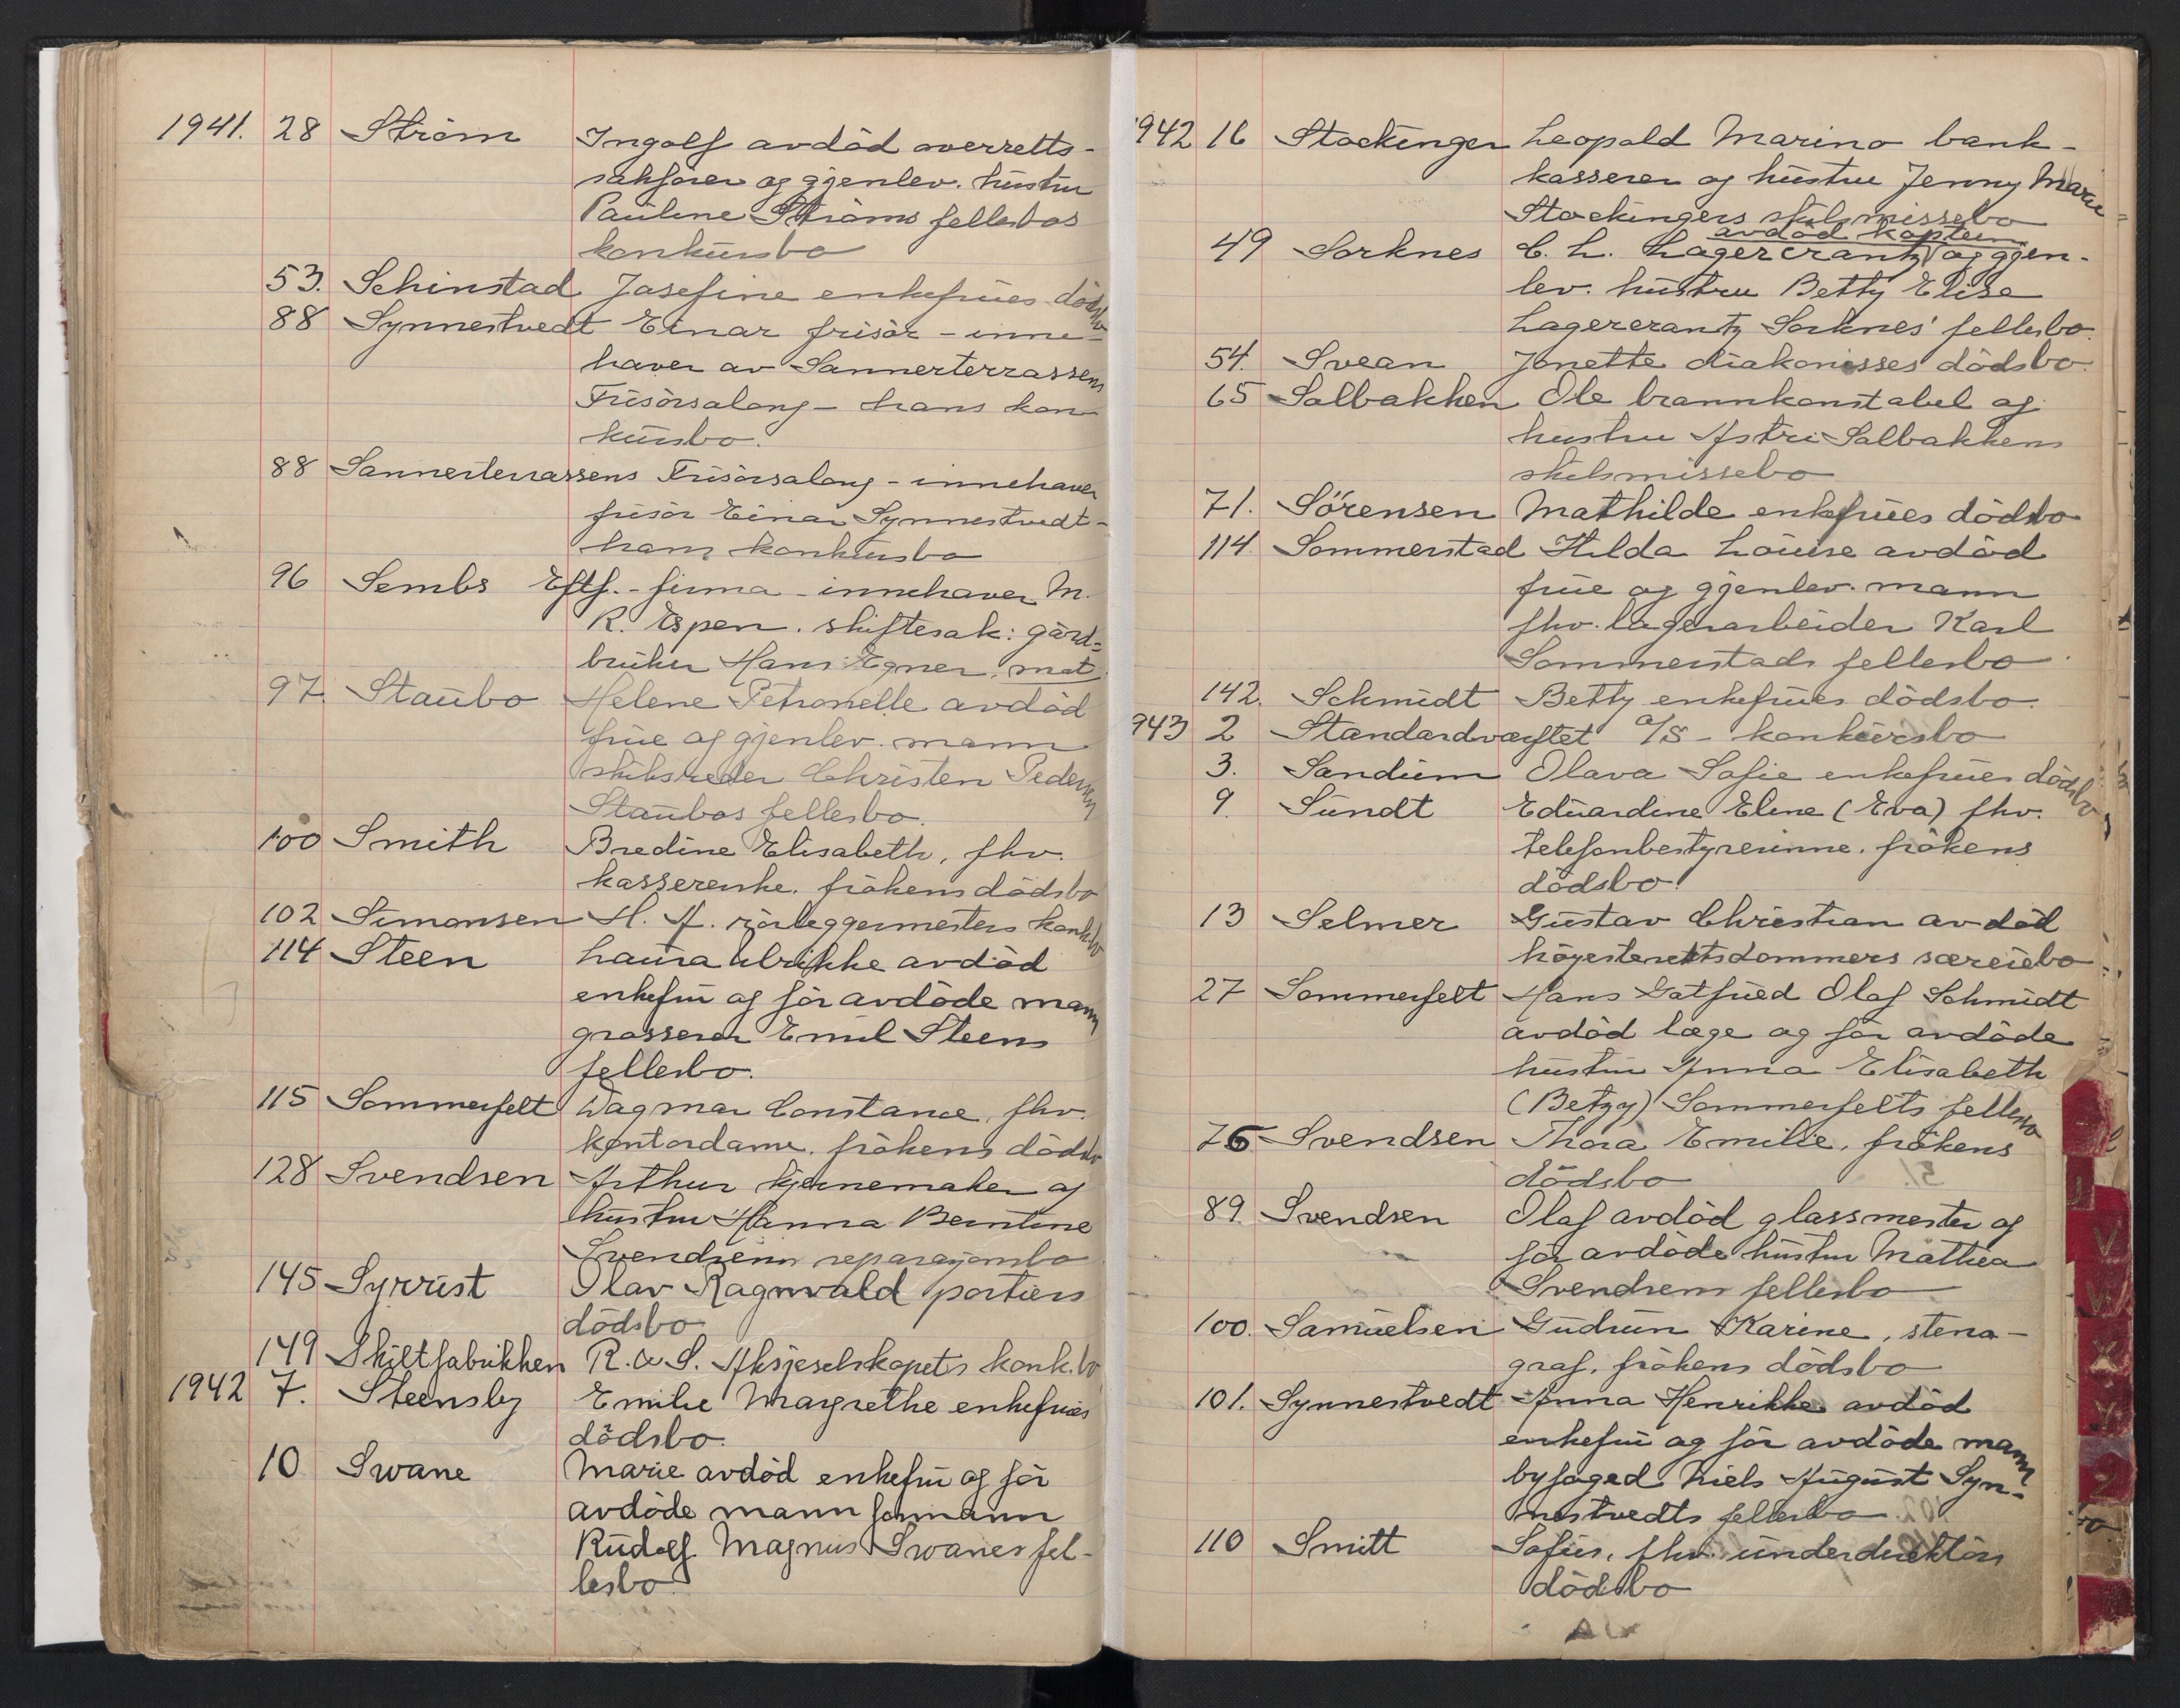 1941. 28 Ström Ingolf avdöd overretts-
sakförer og gjenlev. hustru
Pauline Ströms fellesbos
konkursbo
53. Schinstad Josefine enkefrues dödsbo
88 Synnestvedt Einar frisör - inne-
haver av Sannerterrassens
Frisörsalong - hans kon-
kursbo.
88 Sannerterrassens Frisörsalong - innehaver
frisör Einar Synnestvedt -
hans konkursbo
96 Sembs Eftf. - firma - innehaver M.
R. Espen. skiftesak: gård-
bruker Hans Egner. mot
97. Staubo Helene Petronelle avdöd
frue og gjenlev. mann
skibsreder Christen Pedersen
Staubos fellesbo.
100 Smith Bredine Elisabeth, fhv.
kassererske. frökens dödsbo
102 Simonsen H. A. rörleggermesters konk.bo
114 Steen Laura Ulrikke avdöd
enkefru og för avdöde mann
grosserer Emil Steens
fellesbo.
115 Sommerfelt Dagmar Constance, fhv.
kontordame. frökens dödsbo
128 Svendsen Arthur kjernemaker og
hustru Hanna Berntine
Svendsens reparasjonsbo
145 Syvrist Olav Ragnvald portiers
dödsbo
149 Skiltfabrikken R. & S. Aksjeselskapets konk.bo
1942 7. Steensby Emilie Margrethe enkefrues
dödsbo.
10 Swane Marie avdöd enkefru og för
avdöde mann formann
Rudolf Magnus Swanes fel-
lesbo
1942 16 Stockinger Leopold Marino bank-
kasserer og hustru Jenny Marie
Stockingers skilsmissebo
avdöd kaptein
49 Sorknes C. L. Lagercrantz og gjen-
lev. hustru Betty Elise
Lagercrantz Sorknes' fellesbo.
54. Svean Jonette diakonisses dödsbo.
65 Solbakken Ole brannkonstabel og
hustru Astri Solbakkens
skilsmissebo
71. Sörensen Mathilde enkefrues dödsbo
114. Sommerstad Hilda Louise avdöd
frue og gjenlev. mann
fhv. lagerarbeider Karl
Sommerstads fellesbo.
142. Schmidt Betty enkefrues dödsbo.
1943 2 Standardverftet A/S - konkursbo
3. Sandum Olava Sofie enkefrues dödsbo
9. Sundt Eduardine Eline (Eva) fhv.
telefonbestyrerinne. frökens
dödsbo.
13 Selmer Gustav Christian avdöd
höyesterettsdommers særeiebo
27 Sommerfelt Hans Gotfried Olaf Schmidt
avdöd læge og för avdöde
hustru Anna Elisabeth
(Betzy) Sommerfelts fellesbo
76 Svendsen Thora Emilie, frökens
dödsbo
89. Svendsen Olaf avdöd glassmester og
för avdöde hustru Mathea
Svendsens fellesbo
100. Samuelsen Gudrun Karine, steno-
graf, frökens dödsbo
101. Synnestvedt Anna Henrikke avdöd
enkefru og för avdöde mann
byfoged Niels August Syn-
nestvedts fellesbo
110 Smitt Sofus, fhv. underdirektörs
dödsbo
U
V
W
X
Y